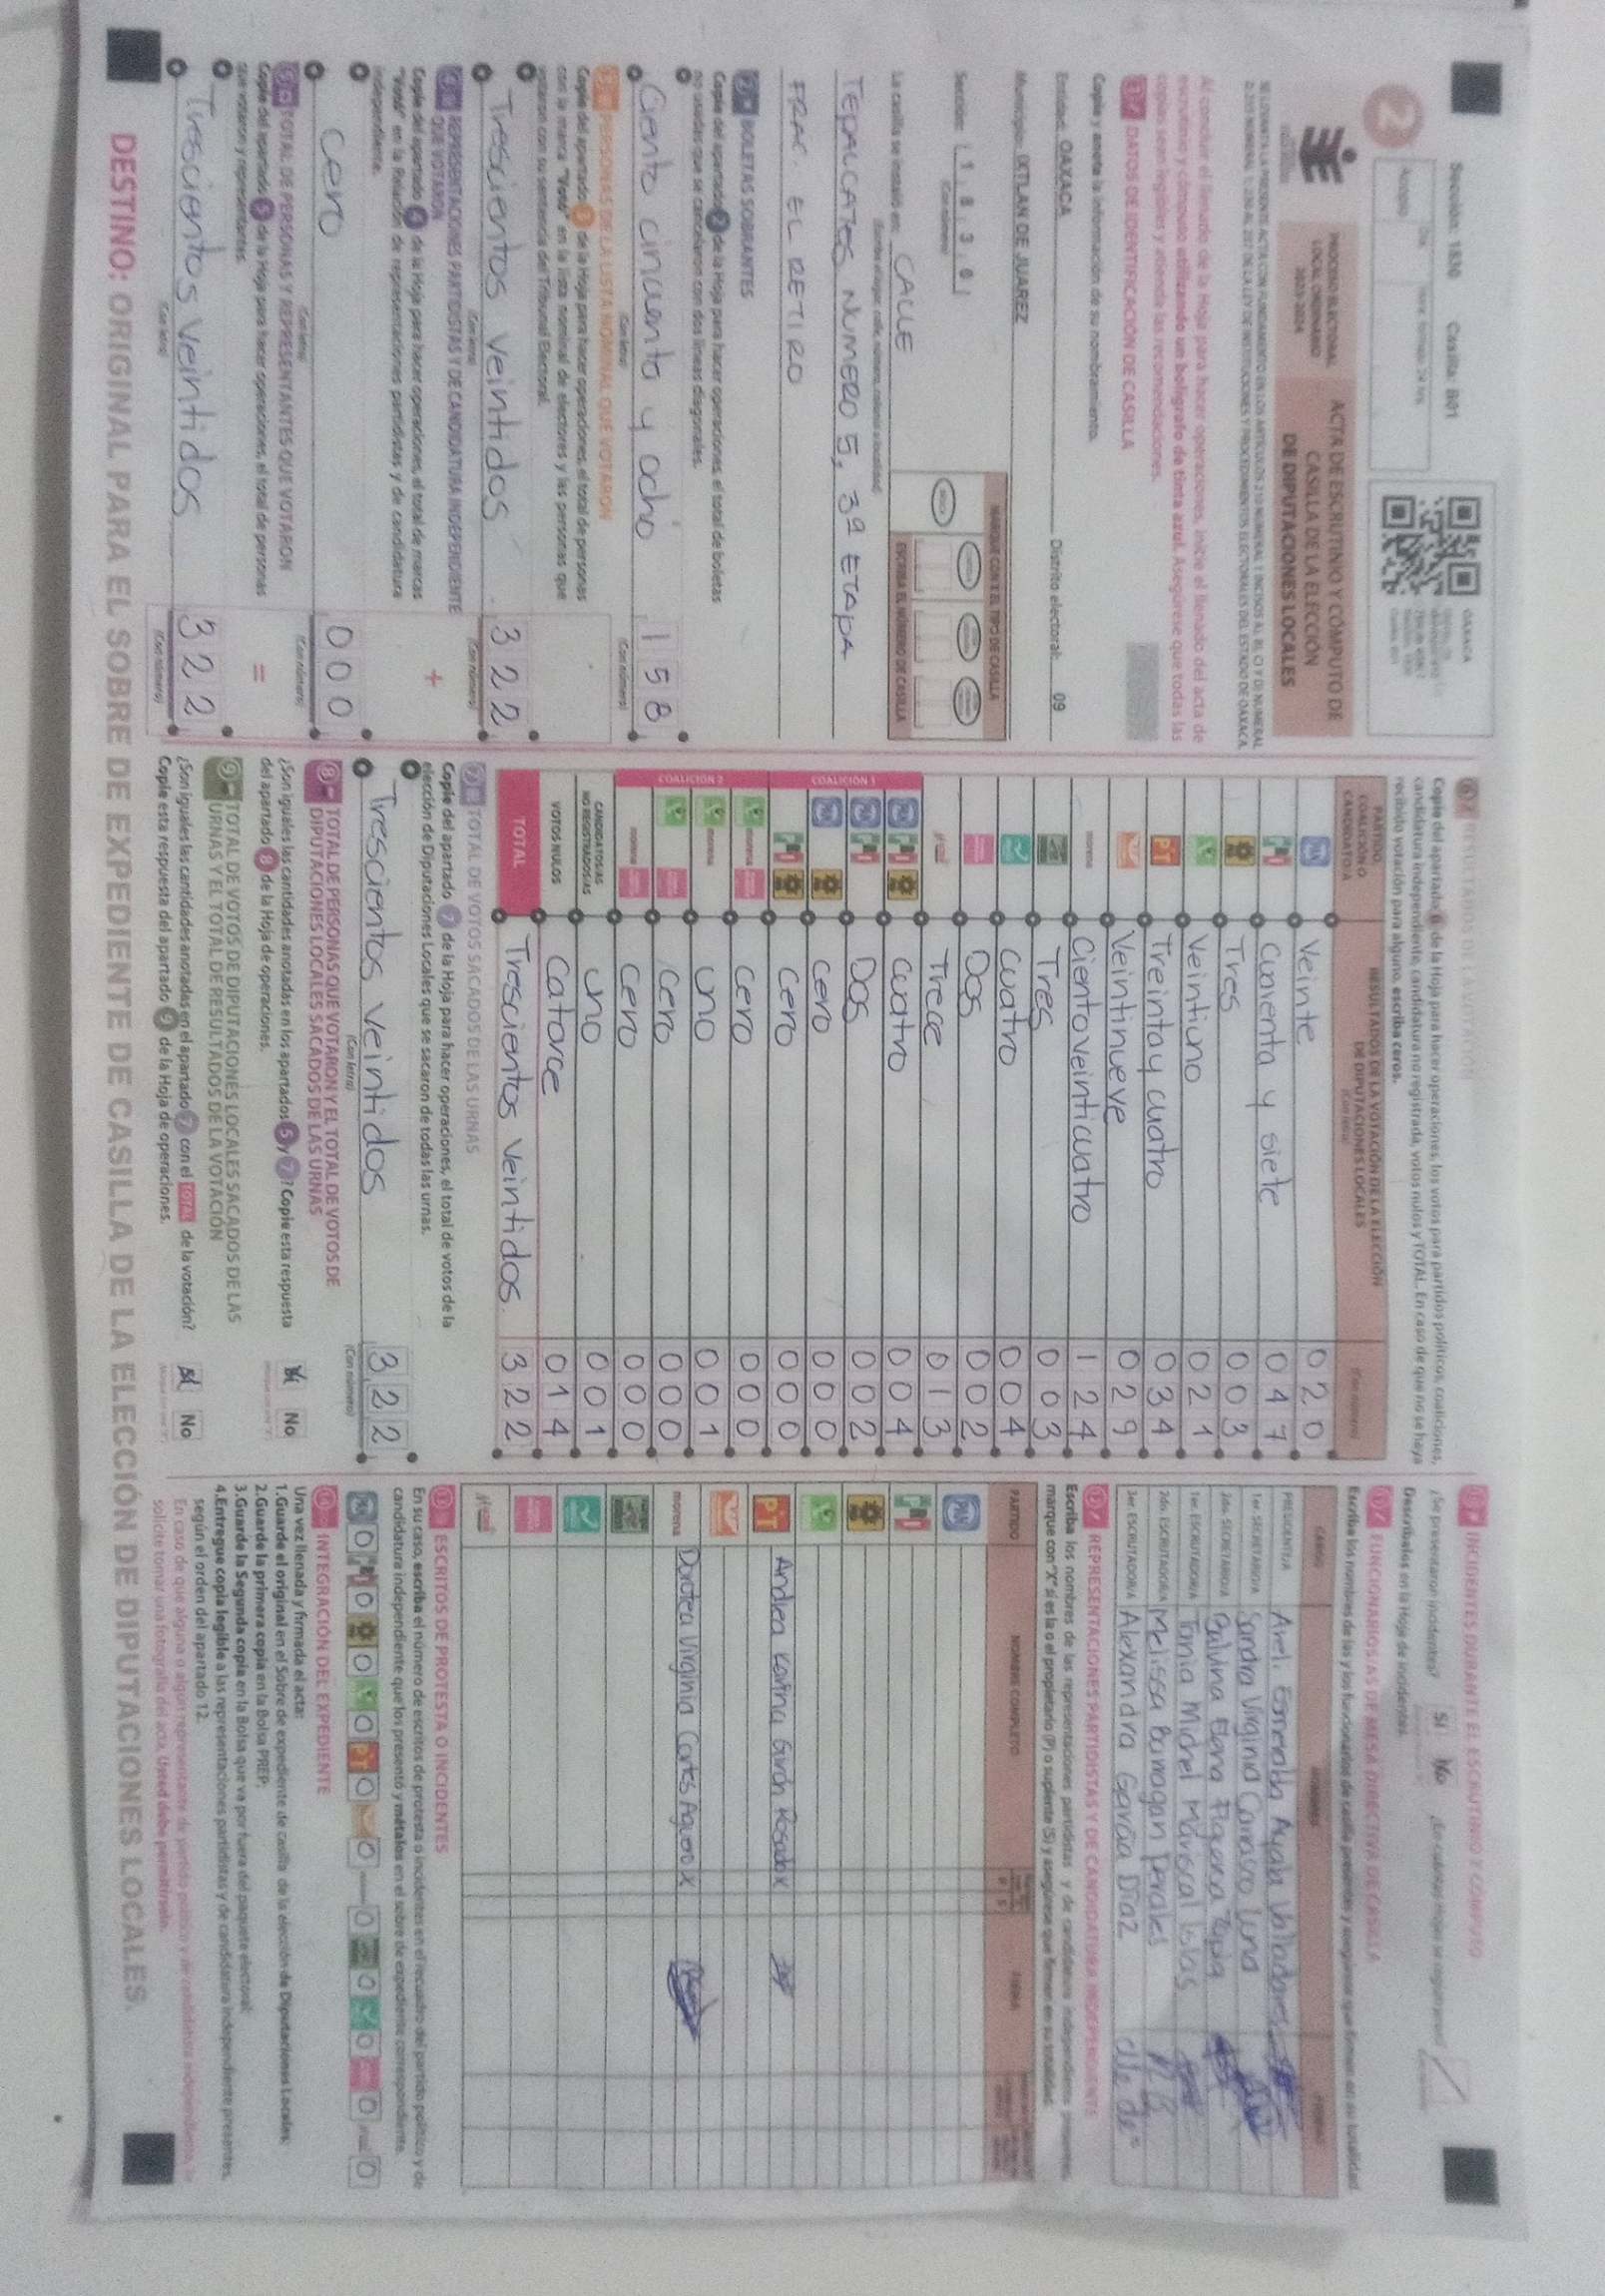 Sección: 1830 Casilla: B01
2
PROCESO ELECTORAL
LOCAL ORDINARIO
2023-2024
ACTA DE ESCRUTINIO Y CÓMPUTO DE
CASILLA DE LA ELECCIÓN
DE DIPUTACIONES LOCALES
OAXACA
Al concluir el llenado de la Hoja para hacer operaciones, inicie el llenado del acta de
escrutinio y cómputo utilizando un bolígrafo de tinta azul. Asegúrese que todas las
copias sean legibles y atienda las recomendaciones.
1 DATOS DE IDENTIFICACIÓN DE CASILLA
Copie y anote la información de su nombramiento.
Entidad: OAXACA Distrito electoral: 09
Municipio: IXTLAN DE JUAREZ
Sección: 1830
(Con número)
MARQUE CON X EL TIPO DE CASILLA
ESCRIBA EL NÚMERO DE CASILLA
La casilla se instaló en: CALLE
TEPALCATES NUMERO 5, 3ª ETAPA
FRAC. EL RETIRO
2 BOLETAS SOBRANTES
Copie del apartado 2 de la Hoja para hacer operaciones, el total de boletas
no usadas que se cancelaron con dos líneas diagonales.
Ciento cincuenta y ocho 158
(Con letra) (Con número)
3 PERSONAS DE LA LISTA NOMINAL QUE VOTARON
Copie del apartado 3 de la Hoja para hacer operaciones, el total de personas
con la marca "Votó" en la lista nominal de electores y las personas que
votaron con su sentencia del Tribunal Electoral.
Trescientos veintidos 322
(Con letra) (Con número)
4 REPRESENTACIONES PARTIDISTAS Y DE CANDIDATURA INDEPENDIENTE
QUE VOTARON
+
Copie del apartado 4 de la Hoja para hacer operaciones, el total de marcas
"Votó" en la Relación de representaciones partidistas y de candidatura
independiente.
Cero 000
(Con letra) (Con número)
5 TOTAL DE PERSONAS Y REPRESENTANTES QUE VOTARON
=
Copie del apartado 5 de la Hoja para hacer operaciones, el total de personas
que votaron y representantes.
Trescientos veintidos 322
(Con letra) (Con número)
6 RESULTADOS DE LA VOTACIÓN
Copie del apartado 6 de la Hoja para hacer operaciones, los votos para partidos políticos, coaliciones,
candidatura independiente, candidatura no registrada, votos nulos y TOTAL. En caso de que no se haya
recibido votación para alguno, escriba ceros.
PARTIDO,
COALICIÓN O
CANDIDATO/A
RESULTADOS DE LA VOTACIÓN DE LA ELECCIÓN
DE DIPUTACIONES LOCALES
(Con letra)
(Con número)
PAN Veinte 020
PRI Cuarenta y siete 047
Tres 003
Veintiuno 021
PT Treinta y cuatro 034
Veintinueve 029
morena Ciento veinticuatro 124
Tres 003
Cuatro 004
Dos 002
Trece 013
COALICIÓN 1
Cuatro 004
Dos 002
Cero 000
Cero 000
COALICIÓN 2
morena Cero 000
morena uno 001
Cero 000
morena Cero 000
CANDIDATOS/AS
NO REGISTRADOS/AS uno 001
VOTOS NULOS Catorce 014
TOTAL Trescientos veintidos. 322
7 TOTAL DE VOTOS SACADOS DE LAS URNAS
Copie del apartado 7 de la Hoja para hacer operaciones, el total de votos de la
elección de Diputaciones Locales que se sacaron de todas las urnas.
Trescientos veintidos 322
(Con letra) (Con número)
8 TOTAL DE PERSONAS QUE VOTARON Y EL TOTAL DE VOTOS DE
DIPUTACIONES LOCALES SACADOS DE LAS URNAS
¿Son iguales las cantidades anotadas en los apartados 5 y 7? Copie esta respuesta
del apartado 8 de la Hoja de operaciones.
Sí No
9 TOTAL DE VOTOS DE DIPUTACIONES LOCALES SACADOS DE LAS
URNAS Y EL TOTAL DE RESULTADOS DE LA VOTACIÓN
¿Son iguales las cantidades anotadas en el apartado 7 con el TOTAL de la votación?
Copie esta respuesta del apartado 9 de la Hoja de operaciones.
Sí No
10 INCIDENTES DURANTE EL ESCRUTINIO Y CÓMPUTO
¿Se presentaron incidentes? Sí No
Descríbalos en la Hoja de incidentes.
11 FUNCIONARIOS/AS DE MESA DIRECTIVA DE CASILLA
Escriba los nombres de las y los funcionarios de casilla presentes y asegúrese que firmen en su totalidad
CARGO NOMBRE FIRMA
PRESIDENTE/A Areli Esmeralda Ayala Valladares
1er. SECRETARIO/A Sandra Virginia Carrasco Luna
2do. SECRETARIO/A Balvina Elena Figueroa Tapia
1er. ESCRUTADOR/A Tania Michel Mariscal Islas
2do. ESCRUTADOR/A Melissa Barragan Perales
3er. ESCRUTADOR/A Alexandra García Díaz
12 REPRESENTACIONES PARTIDISTAS Y DE CANDIDATURA INDEPENDIENTE
Escriba los nombres de las representaciones partidistas y de candidatura independiente presentes,
marque con "X" si es la o el propietario (P) o suplente (S) y asegúrese que firmen en su totalidad.
PARTIDO NOMBRE COMPLETO FIRMA
PAN
PRI
PT Andrea Karina Girón Rosado X
morena Dortea Virginia Cortés Aguero X
13 ESCRITOS DE PROTESTA O INCIDENTES
En su caso, escriba el número de escritos de protesta o incidentes en el recuadro del partido político y de
candidatura independiente que los presentó y métalos en el sobre de expediente correspondiente.
0 0 0 0 0 0 0 0 0 0 0
14 INTEGRACIÓN DEL EXPEDIENTE
Una vez llenada y firmada el acta:
1.Guarde el original en el Sobre de expediente de casilla de la elección de Diputaciones Locales;
2.Guarde la primera copia en la Bolsa PREP;
3.Guarde la Segunda copia en la Bolsa que va por fuera del paquete electoral;
4.Entregue copia legible a las representaciones partidistas y de candidatura independiente presentes,
según el orden del apartado 12.
En caso de que alguna o algún representante de partido político y de candidatura independiente, le
solicite tomar una fotografía del acta, Usted debe permitirlo.
DESTINO: ORIGINAL PARA EL SOBRE DE EXPEDIENTE DE CASILLA DE LA ELECCIÓN DE DIPUTACIONES LOCALES.